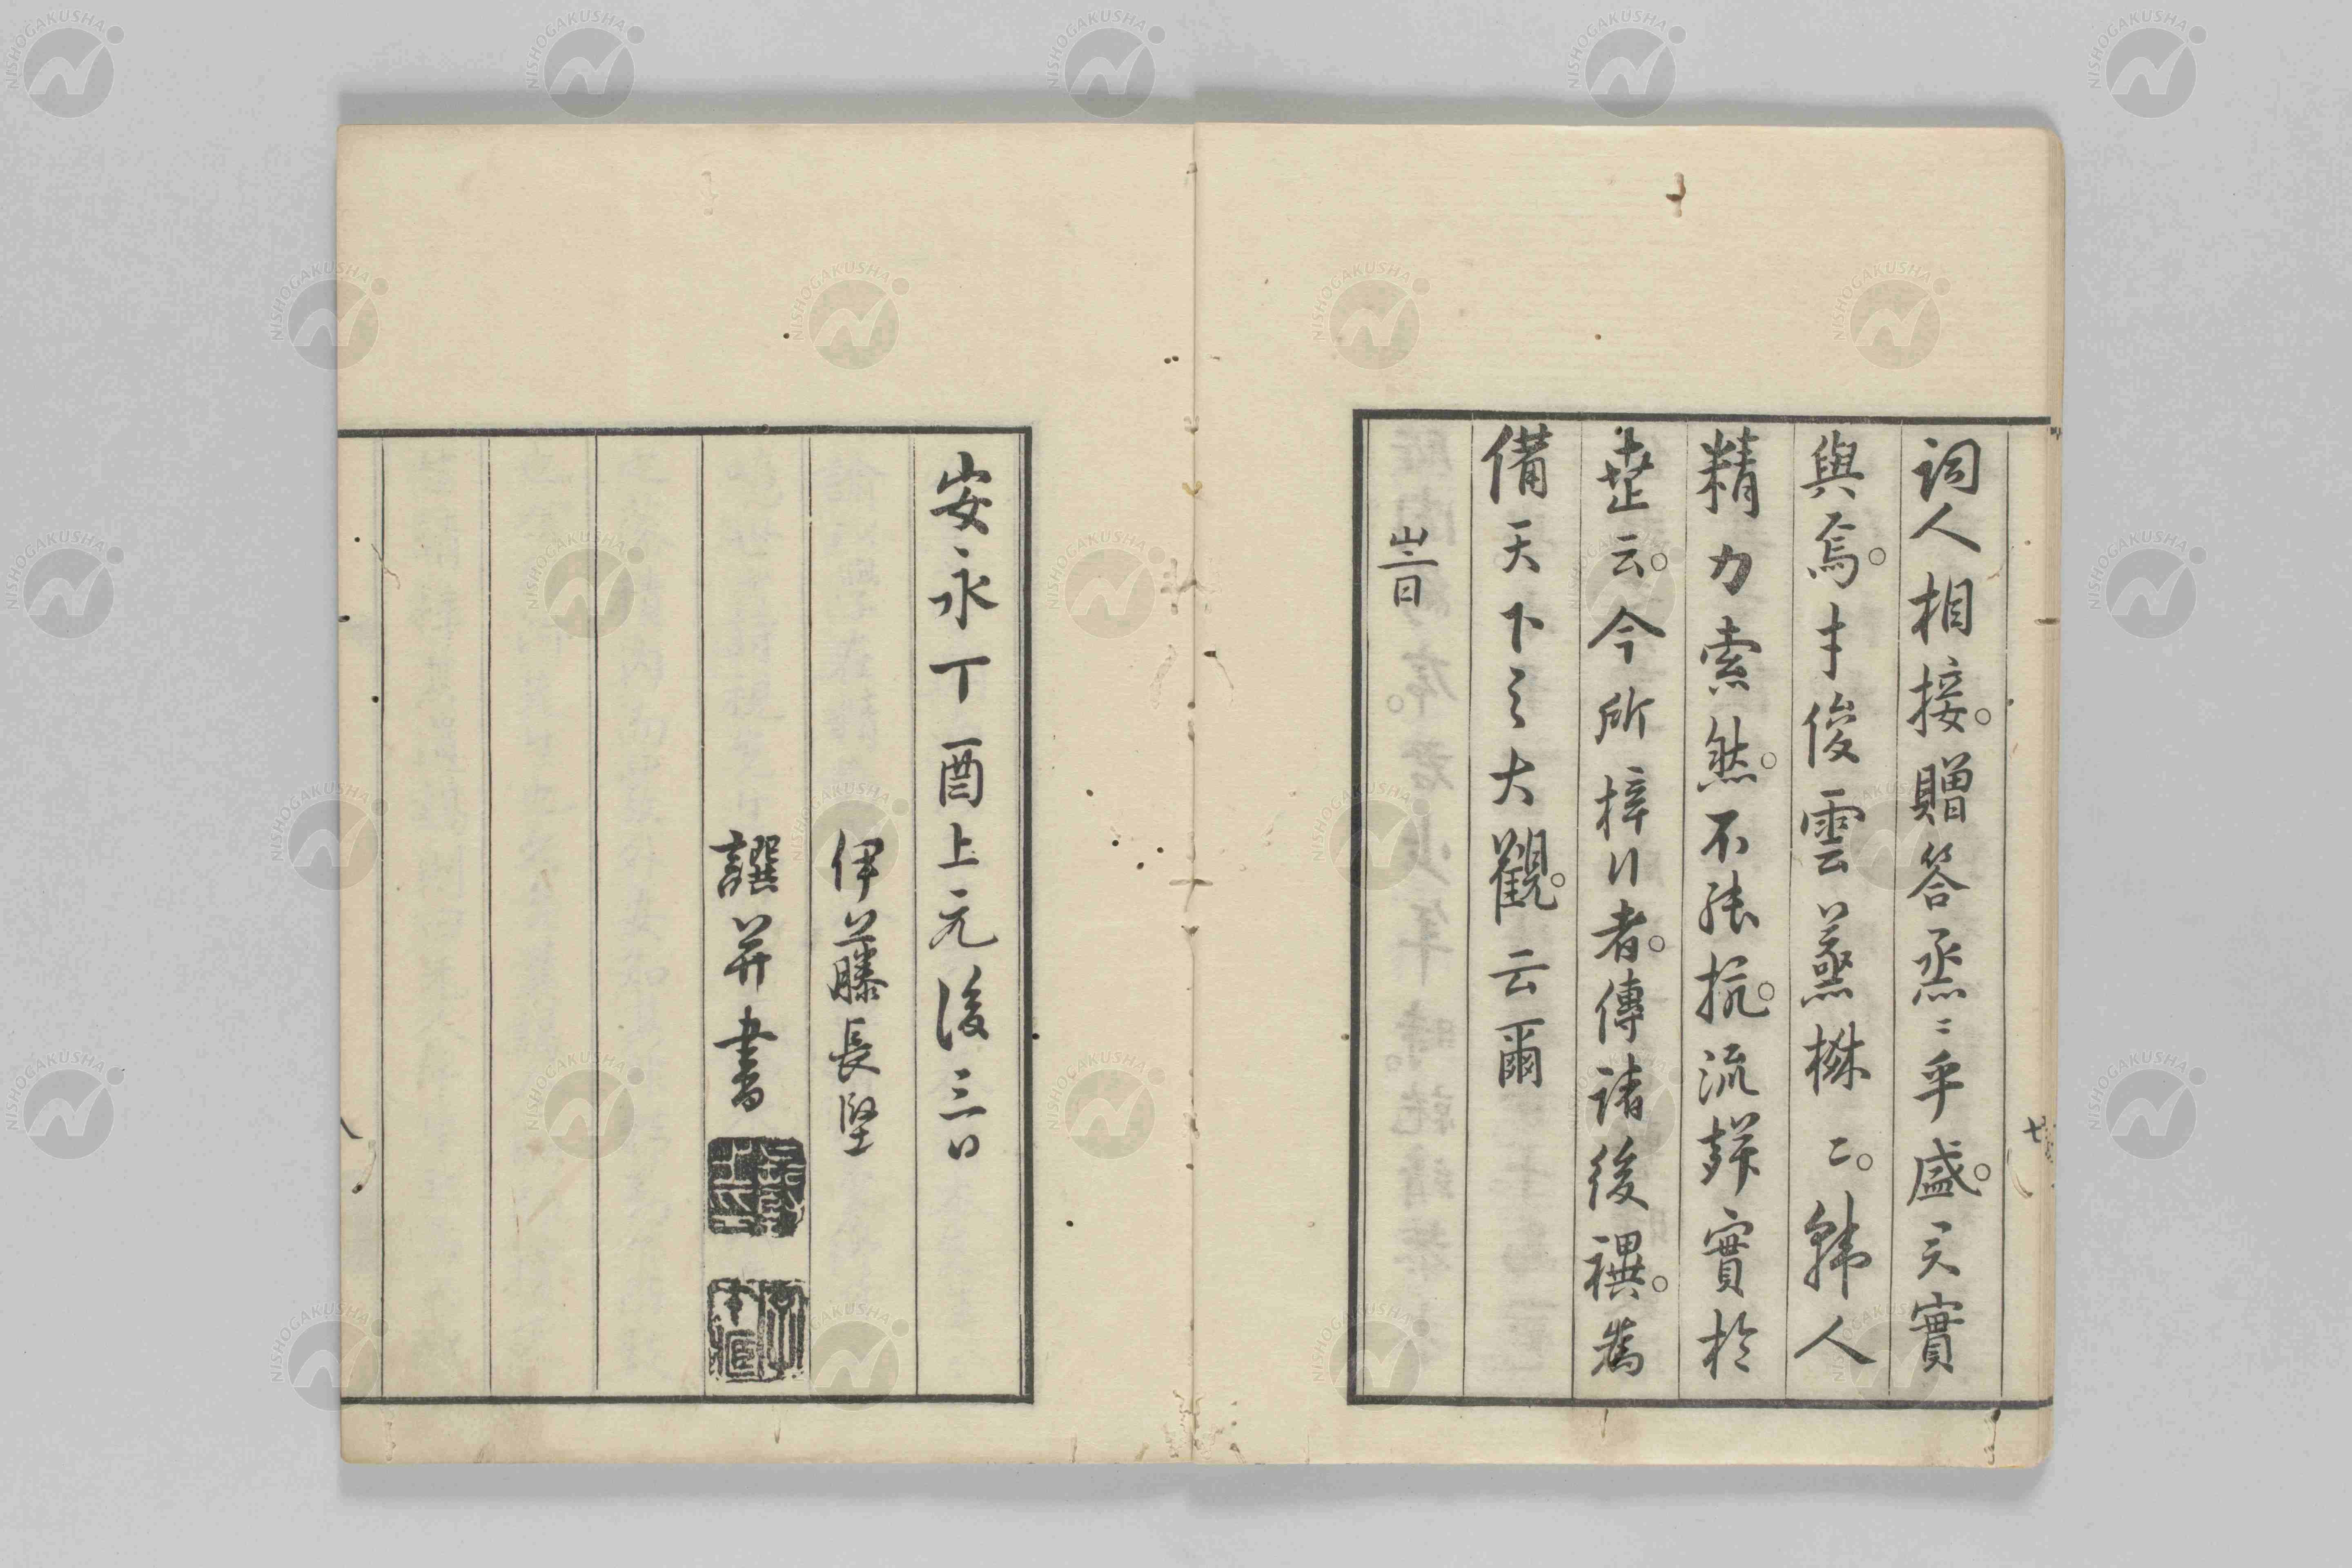 詞人相接。贈答烝〻乎盛。天實
與焉。才俊雲蒸楙〻。韓人
精力索然。不能抗。流辭實於
焚云。今所梓行者。傳諸後禩。為
備天下之大觀。云爾
旹
安永丁酉上元後三日
伊藤長堅
譔并書
NISHOGAKUSHA